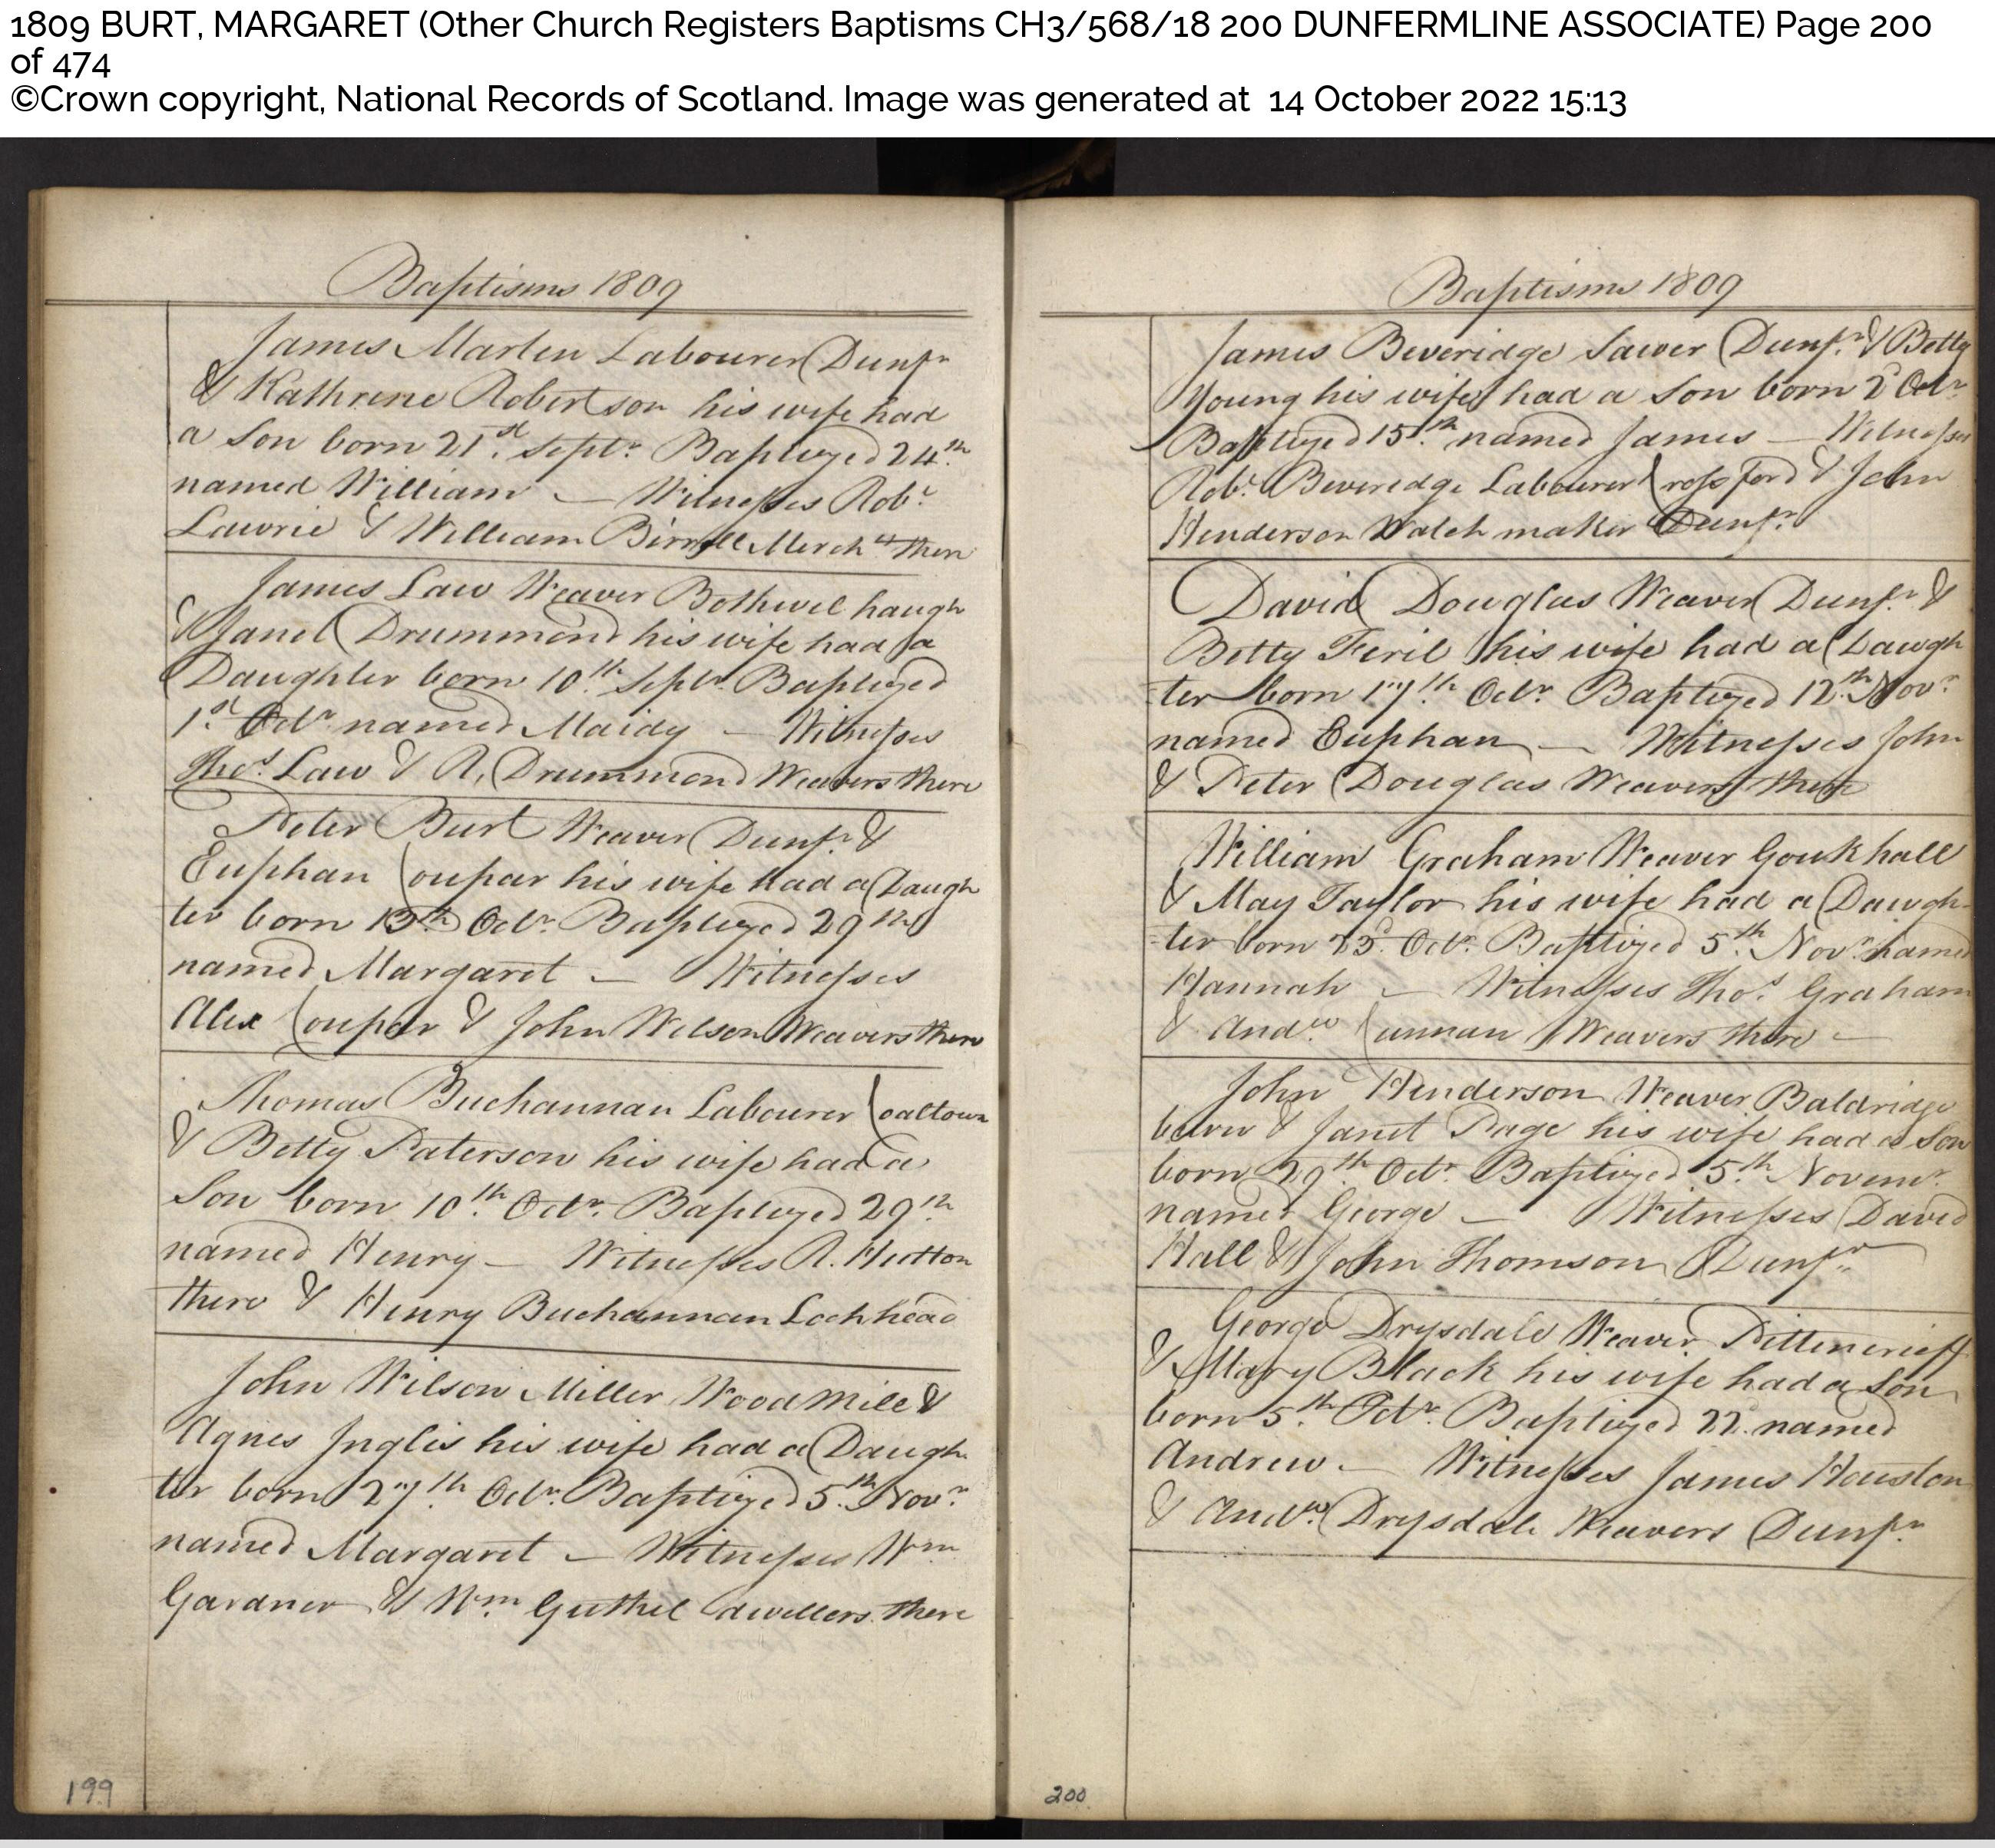 1809 BURT, MARGARET (Other Church Registers Baptisms CH3/568/18 200 DUNFERMLINE ASSOCIATE) Page 200
of 474
©Crown copyright, National Records of Scotland. Image was generated at 14 October 2022 15:13
Baptisms 1809
James Marten Labourer Dunfr
& Kathrine Robertson his wife had
a Son born 21st. Septr. Baptized 24th.
named William — Witnesses Robt
Lawrie & William Birrell Merchts then
James Law Weaver Bothwel haugh
& Janet Drummond his wife had a
Daughter born 10th. Septr. Baptized
1st. Octr. named Maidy — Witnesses
Thos. Law & A. Drummond Weavers there
Peter Burt Weaver Dunfr. &
Euphan Coupar his wife had a Daugh
ter born 13th Octr. Baptized 29th
named Margaret — Witnesses
Alex Coupar & John Wilson Weavers there
Thomas Buchannan Labourer Coaltown
& Betty Paterson his wife had a
Son born 10th. Octr. Baptized 29th.
named Henry — Witnesses R. Hutton
there & Henry Buchannan Lochhead
John Wilson Miller Woodmill &
Agnes Inglis his wife had a Daugh
ter born 27th. Octr. Baptized 5th. Novr.
named Margaret — Witnesses Wm
Gardner & Wm. Guthel dwellers there
199
Baptisms 1809
James Beveridge Sawer Dunfr. & Betty
Young his wife had a Son born 2d Octr.
Baptized 15th. named James — Witnesses
Robt. Beveredge Labourer Crossford & John
Henderson Watch maker Dunfr.
David Douglas Weaver Dunfr. &
Betty Feril his wife had a Daugh
-ter born 17th. Octr. Baptized 12th. Novr.
named Euphan — Witnesses John
& Peter Douglas Weavers there
William Graham Weaver Goukhall
& May Taylor his wife had a Daugh-
-ter born 23d. Octr. Baptized 5th. Novr. named
Hannah — Witnesses Thos. Graham
& Andw. Cunnan Weavers there —
John Henderson Weaver Baldridge
burn & Janet Page his wife had a Son
born 29th. Octr. Baptized 5th. Novemr.
named George — Witnesses David
Hall & John Thomson Dunfr.
George Drysdale Weaver Pittencrieff
& Mary Black his wife had a Son
born 5th. Octr. Baptized 22. named
Andrew — Witnesses James Houston
& Andw. Drysdale Weavers Dunfr.
200